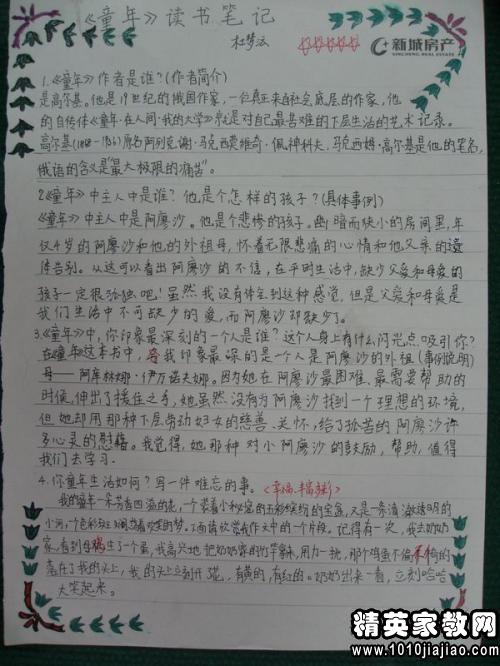 《童年》读书笔记
杜梦
新城房产
XINCHENG REAL ESTATE
1.《童年》作者是谁?(作者简介)
是高尔基。他是19世纪的俄国作家,一位真正来自社会底层的作家,他
的自传体《童年·在人间·我的大学》就是对自己最苦难的下层生活的艺术记录。
高尔基(1868-1936)原名阿列克谢·马克西莫维奇·佩神科夫,马克西姆·高尔基是他的笔名,
俄语的含义是"最大极限的痛苦"。
2.《童年》中主人中是谁?他是个怎样的孩子?(具体事例)
《童年》中主人中是阿廖沙。他是个悲惨的孩子。幽暗而狭小的房间里,年
仅4岁的阿廖沙和他的外祖母,怀着无限悲痛的心情和他父亲的遗
体告别。从这可以看出阿廖沙的不信,在平时生活中,缺少父爱和母爱的
孩子一定很孤独吧!虽然我没有体会到这种感觉,但是父爱和母爱是
我们生活中不可缺少的爱,而阿廖沙却缺少了。
3.《童年》中,你印象最深刻的一个人是谁?这个人身上有什么闪光点吸引你?
在《童年》这本书中,令我印象最深的是一个人是阿廖沙的外祖(事例说明)
母——阿库林娜·伊万诺夫娜。因为她在阿廖沙最困难、最需要帮助的
时候,伸出了援住之手,她虽然没有为阿廖沙找到一个理想的环境,
但她却用那种下层劳动妇女的慈善、关怀,给了孤苦的阿廖沙许
多心灵的慰藉。我觉得,她那种对小阿廖沙的鼓励,帮助,值得
我们去学习。
4.你童年生活如何?写一件难忘的事。(幸福、丰富多彩)
我的童年一朵芳香四溢的花,一个装着小秘密的五彩缤纷的宝盒,又是一条清澈透明的
小河,一个色彩斑斓欢笑的梦。下面请欣赏我作文中的一个片段。记得有一次,我去奶奶
家,看到母鸡生了一个蛋,我高兴地把奶奶家的竹竿拿来,用力一挑,那个鸡蛋不偏不倚的
落在了我的头上,我的头上立刻开花,有黄的,有红的。奶奶出来一看,立刻哈哈
大笑起来。
精英家教网
http://www.1010jiajiao.com